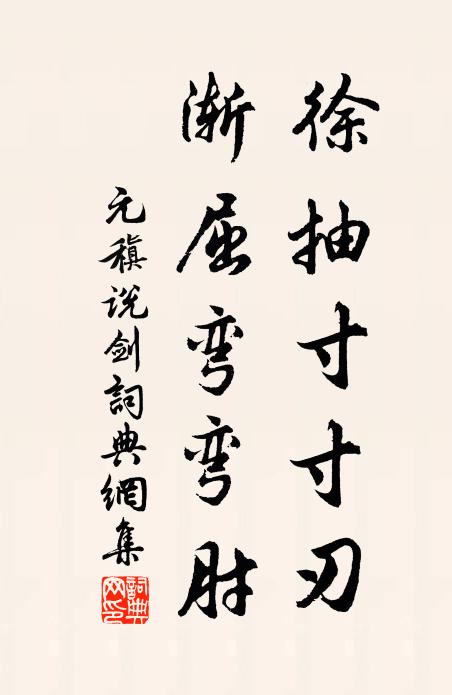 徐抽寸寸刃
渐屈弯弯肘
元稹说剑詞典網集
詞典
网印